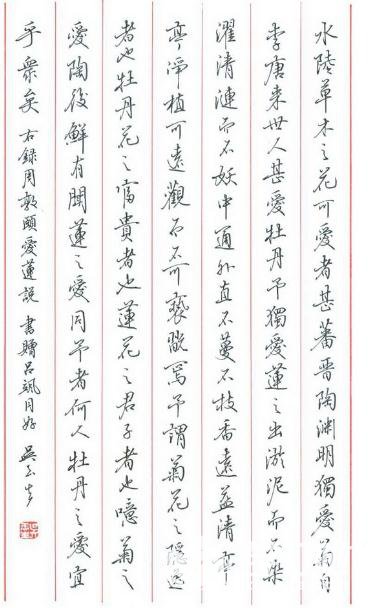 水陸草木之花可愛者甚蕃晉陶淵明獨愛菊自
李唐來世人甚愛牡丹予獨愛蓮之出淤泥而不染
濯清漣而不妖中通外直不蔓不枝香遠益清亭
亭淨植可遠觀而不可褻翫焉予謂菊花之隱逸
者也牡丹花之富貴者也蓮花之君子者也噫菊之
愛陶後鮮有聞蓮之愛同予者何人牡丹之愛宜
乎衆矣 右錄周敦頤愛蓮說 書贈呂颯同好 吳玉生